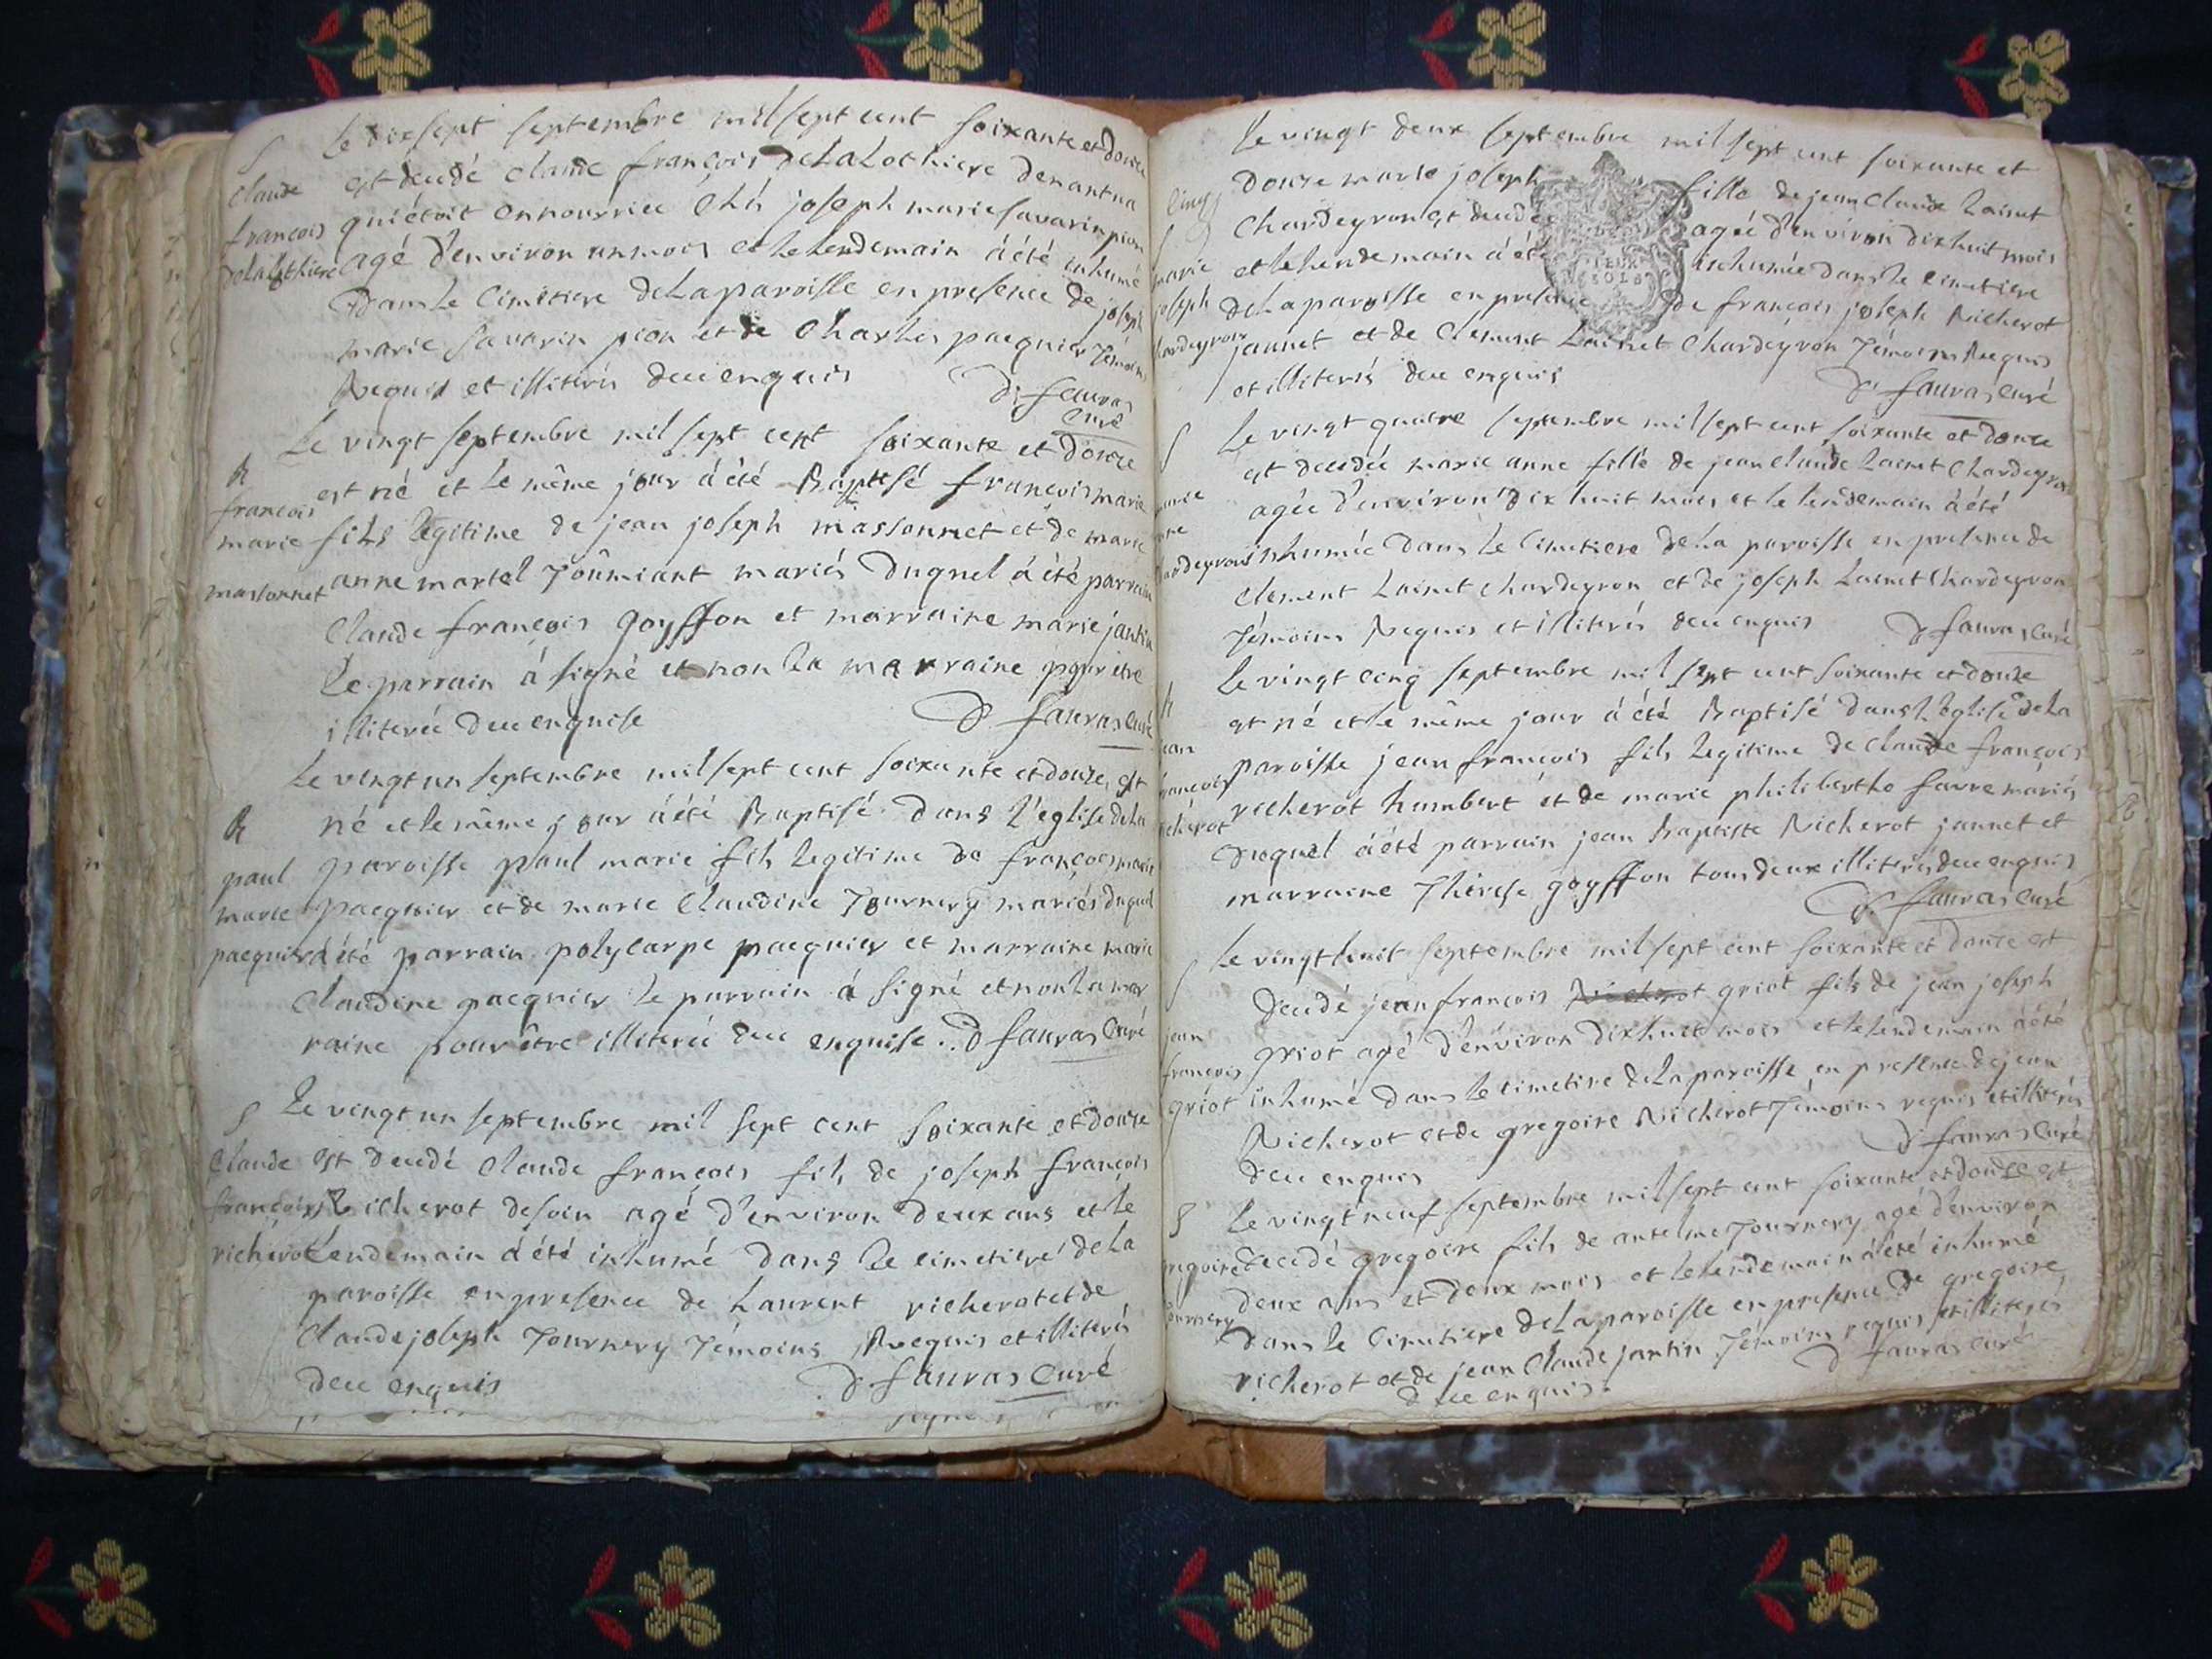 Le dixsept septembre mil sept cent soixante et douze
S
Claude
françois
delalothiere
est decedé claude françois delalothiere denantua
qui étoit en nourrice chés joseph marie savarin pion
agé d'environ un mois et le lendemain á été inhumé
dans le cimetiere de la paroisse en presence de joseph
marie savarin pion et de charles pacquier témoins
Requis et illiterés de ce enquis
D. fauras
curé
Le vingt septembre mil sept cent soixante et douze
B
françois
marie
massonnet
est né et le même jour á été Baptisé françois marie
fils legitime de jean joseph massonnet et de marie
anne martel Toûmiant mariés duquel á été parrain
Claude françois goyffon et marraine marie jantin
Le parrain á signé et non la marraine pour être
illiterée de ce enquise
D. fauras curé
Le vingt un septembre mil sept cent soixante et douze, est
B
paul
marie
pacquier
né et le même jour á été Baptisé dans l'église de la
paroisse paul marie fils legitime de françois marie
pacquier et de marie Claudine Tournery mariés duquel
á été parrain polycarpe pacquier et marraine marie
Claudine pacquier le parrain á signé et non la mar
raine pour être illiterée de ce enquise. D fauras curé
Le vingt un septembre mil sept cent soixante et douze
S
Claude
françois
richerot
est decedé Claude françois fils de joseph françois
Richerot desoin agé d'environ deux ans et le
lendemain á été inhumé dans le cimetiere de la
paroisse en presence de Laurent richerot et de
Claude joseph Tournery Témoins Requis et illiterés
de ce enquis
D. fauras Curé
Le vingt deux septembre mil sept cent soixante et
cinq
S
marie
joseph
chardeyron
douze marie joseph fille de jean claude Lainet
chardeyron est decedée agée d'environ dixhuit mois
et le lendemain á été inhumée dans le cimetiere
de la paroisse en presence de françois joseph Richerot
jannet et de Clement Lainet Chardeyron Témoins Requis
et illiterés de ce enquis
D. fauras curé
S
marie
anne
chardeyron
Le vingt quatre septembre mil sept cent soixante et douze
est decedée marie anne fille de jean claude Lainet Chardeyron
agée d'environ dix huit mois et le lendemain á été
inhumée dans le Cimetiere de la paroisse en presence de
Clement Lainet chardeyron et de joseph Lainet Chardeyron
Témoins Requis et illiterés de ce enquis
D fauras curé
B
jean
françois
richerot
Le vingt cinq septembre mil sept cent soixante et douze
est né et le même jour á été Baptisé dans l'église de la
paroisse jean françois fils legitime de claude françois
richerot humbert et de marie philiberthe favre mariés
duquel á été parrain jean Baptiste Richerot jannet et
marraine Thérese goyffon tous deux illiterés de ce enquis
D. fauras curé
S
jean
françois
griot
Le vingt huit septembre mil sept cent soixante et douze est
decedé jean françois Richerot griot fils de jean joseph
griot agé d'environ dixhuit mois et le lendemain á été
inhumé dans le cimetire de la paroisse en presence de jean
Richerot et de gregoire Richerot Témoins requis et illiterés
de ce enquis
D. fauras Curé
S
gregoire
tournery
Le vingt neuf septembre mil sept cent soixante et douze est
decedé gregoire fils de antelme Tournery agé d'environ
deux ans et deux mois et le lendemain á été inhumé
dans le Cimetiere de la paroisse en presence de gregoire
richerot et de jean Claude jantin Témoins requis et illiterés
de ce enquis.
D fauras curé